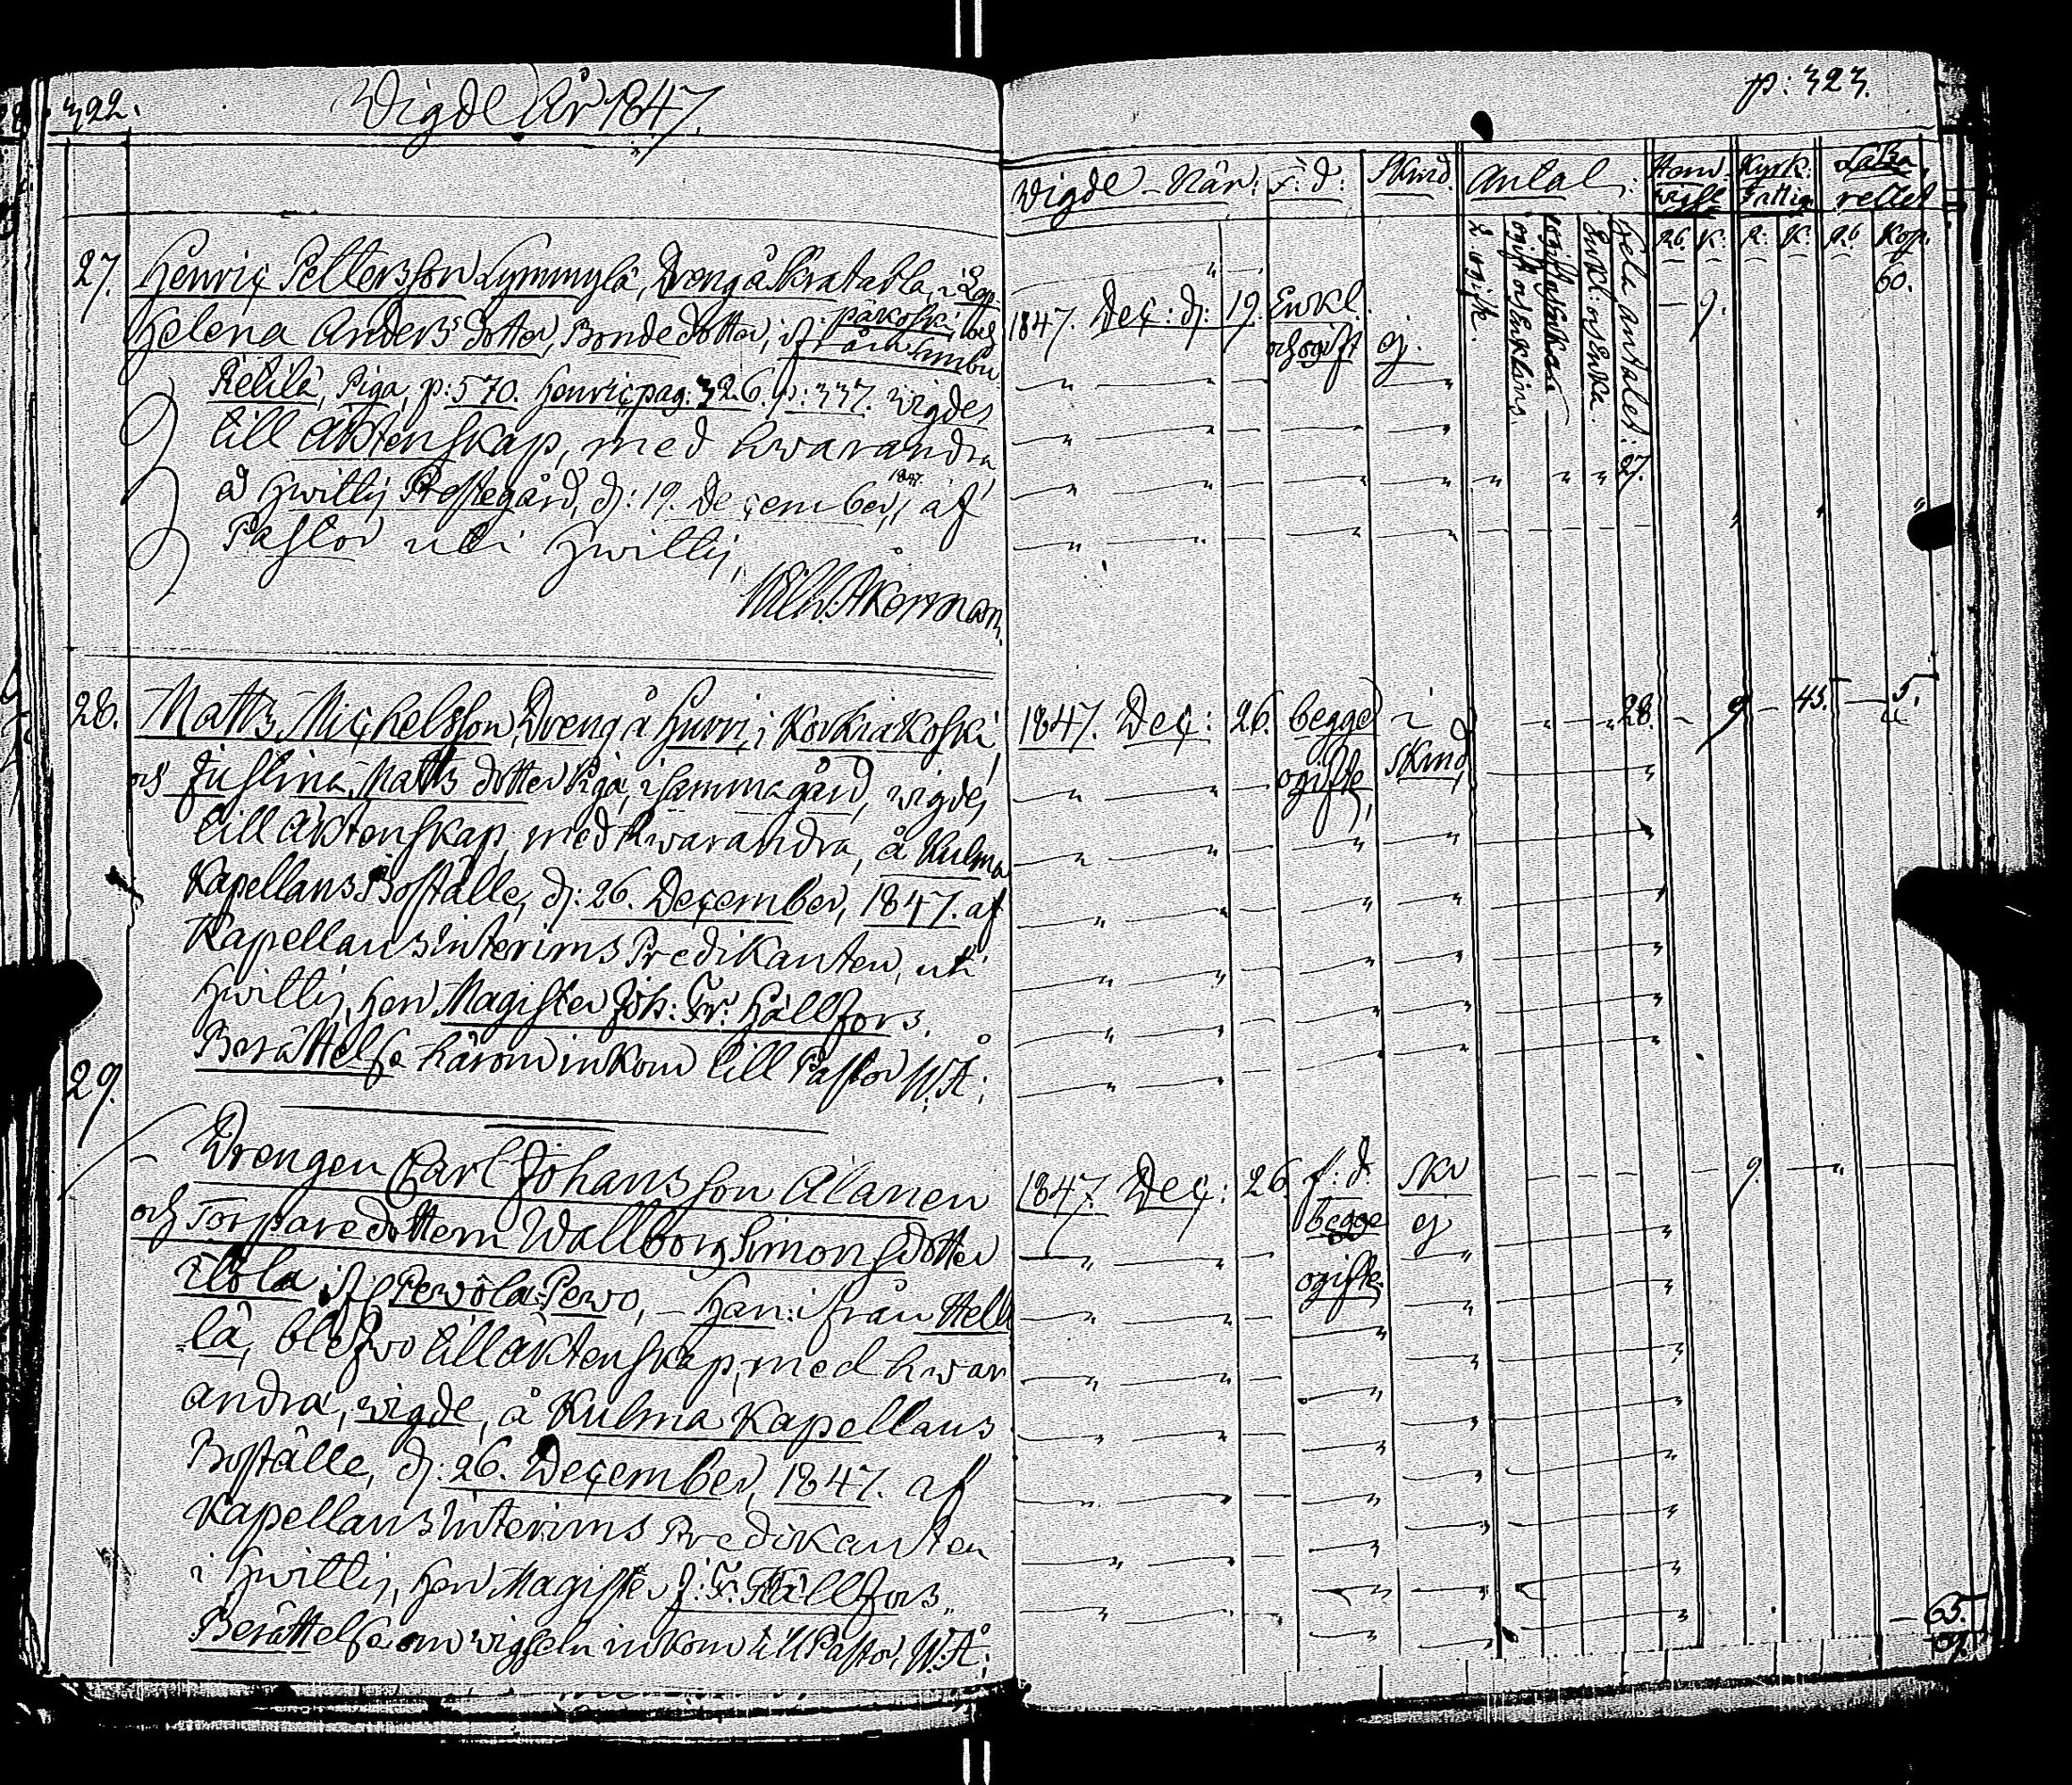 322.
Wigde År 1847.
27. Henric Pettersson Lymmylä, Dreng å Skratarla, i Lop-
päkoski, och
Helena Anders dotter, Bondedotter, ifr:
Retilä, Piga, p: 570. Henric pag: 326. p: 337. wigdes
till äktenskap, med hwarandra,
å Hwittis Prestegård, d: 19. December, 1847. af
Pastor uti Hwittis,
Wilh. Åkerman.
28. Matts Michelsson, Dreng å Hurri, i Korkiakoski,
och Justina Matts dotter Piga, i samma gård, wigdes
till äktenskap, med hwarandra, å Kulma
Kapellans Boställe, d: 26. December, 1847. af
Kapellans Interims Predikanten, uti
Hwittis, Herr Magister Joh: Fr: Hällfors.
Berättelse härom inkom till Pastor W. Å:
29.
Drengen Carl Johansson Alanen
och Torparedottern Wallborg Simonsdotter
ifr Pewola Pewo, – Han: ifrån Hell
lä, blefwo till äktenskap, med hwar
andra, wigde, å Kulma Kapellans
Boställe, d: 26. December, 1847. af
Kapellans Interims Predikanten
i Hwittis, Herr Magister J: F: Hällfors.
Berättelse om wigseln inkom till Pastor, W. Å:
p: 323.
Wigde – När: f: d: Skind. Antal:
Kyrk:
Fattig
2. ogifte.
ogift och Enkling.
Enkl: och Enka.
Hela antalet: 27.
R. K. R. K. R. Kop.
60.
1847. Dec: d: 19. Enkl. – 9.
och ogift ej.
1847. Dec: 26. begge i 28. – 9 – 45. – 5.
ogifte, Skind
1847. Dec: 26. f: d. Skr – 9.
begge ej
ogifte.
65.